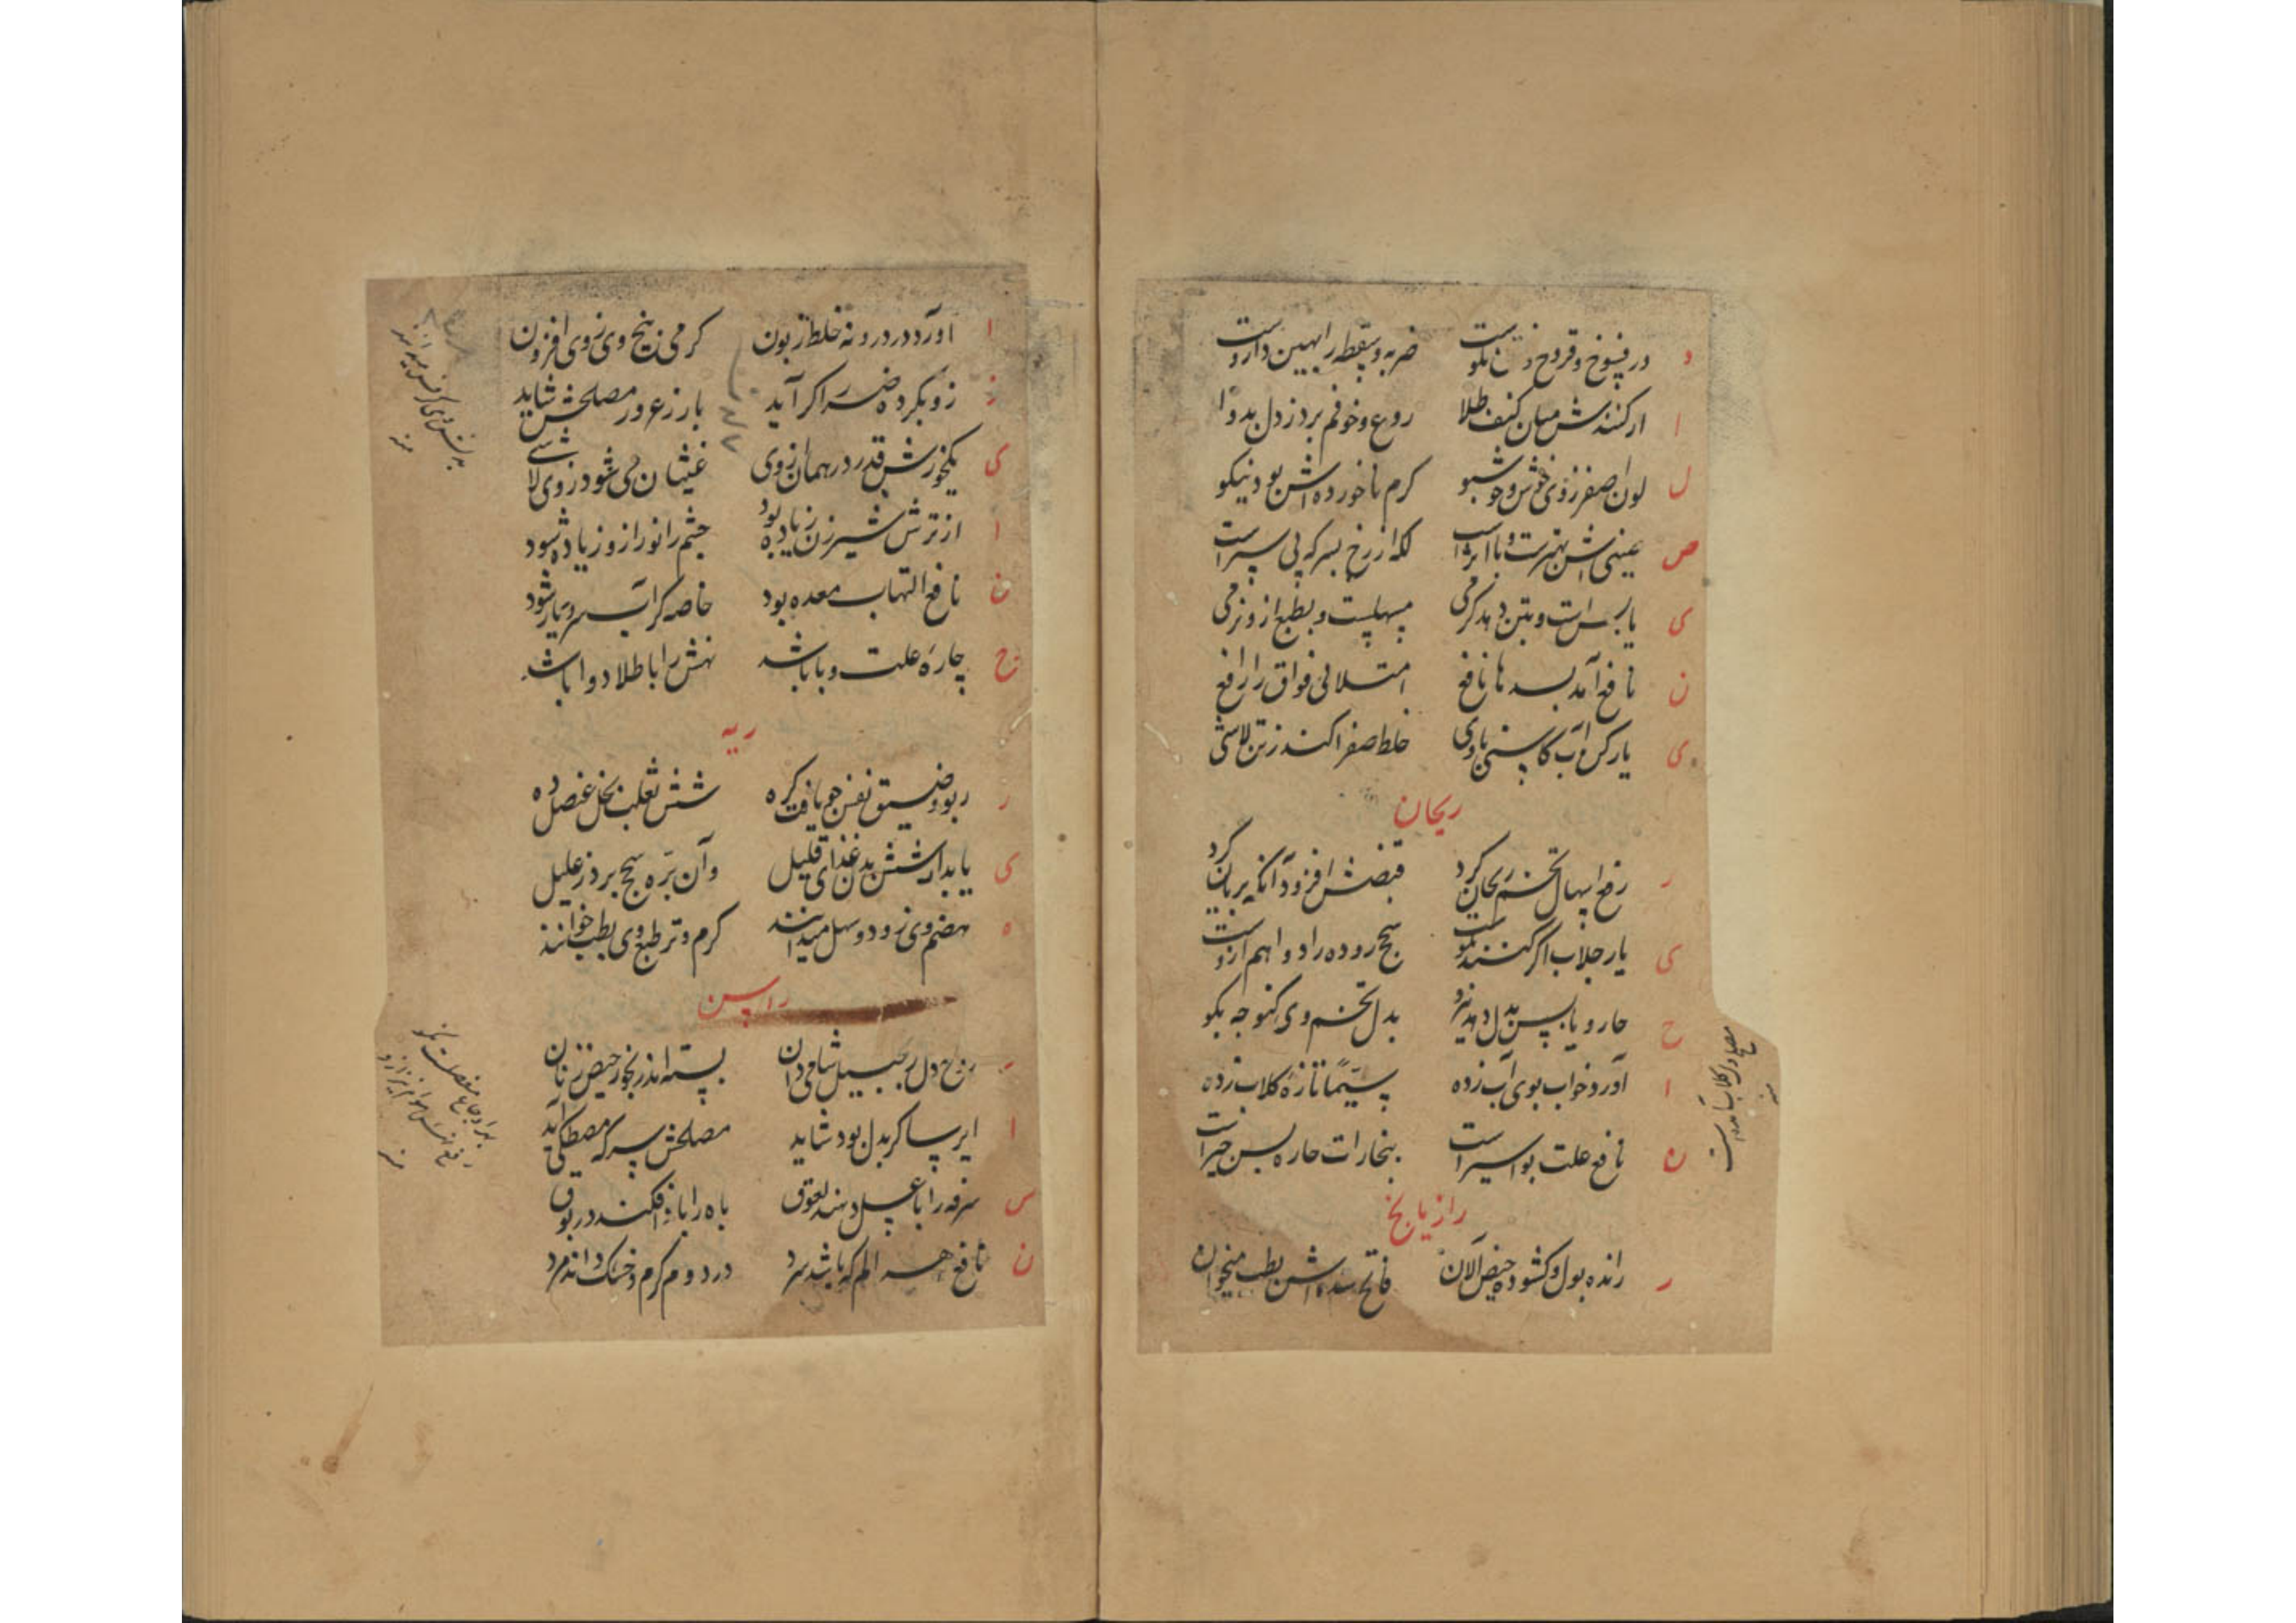 د در فسوخ و قروح نیکوست ضربه و سقطه را بهین داروست
ا ار کنندش میان کنف طلا روع و خوفم برد ز دل بدوا
ل لون اصفر ز وی خوش و خوشبو کرم ناخورده اش بود نیکو
ص عینی اش بهتر است و با اثر است لکه از رخ بسرکه پی سپر است
ی یابس است و بتن دهد گرمی مسهلست و بطبع ازو نرمی
ن نافع آمد بسدها نافع امتلائی فواق را رافع
ی یار کن آب کاسنی با وی خلط صفرا کند ز تن لاشی
ریحان
ر رفع اسهال تخم ریحان کرد قبضش افزود آنکه بریان کرد
ی یار جلاب اگر کنند نکوست سحج روده را دوا هم ازوست
ح حار و یابس بدل دهد نیرو بدل تخم وی کنوجه بگو
ا آورد خواب بوی آب زده سیما تازه گلاب زده
ن نافع علت بواسیر است بنجارات حاره بس خیر است
رازیانج
ر رانده بول و گشوده حیض الآن فاتح سده اش بطب میخوان
ا آورد در درونه خلط زبون گرمی بیخ وی ز وی افزون
ز زو بگرده ضرر اگر آید بارزه ور مصلحش شاید
ی یکخورش قدر درهمان ز وی غثیان می شود ز وی لاشی
ا از ترش شیر زن زیاده بود چشم را نور ازو زیاده شود
ن نافع التهاب معده بود خاصه گر آب سرد یار شود
ج چاره علت وبا باشد نهش را با طلا دوا باشد
ریه
ر ربو و ضیق نفس چو یافت گره شش ثعلب بخل عنصل ده
ی یا بدار شش بدن غذای قلیل وآن بره سحج برد ز علیل
ه هضم وی زود و سهل میدانند گرم و تر طبع وی بطب خوانند
راسن
ر روح دل زنجبیل شامی دان بسته اند بخور حیض زنان
ا ایرسا گر بدل بود شاید مصلحش سرکه مصطکی آید
س سرفه را با عسل دهند لعوق باه را باز افکند در بوق
ن نافع هر الم که باشد سرد در دوم گرم و خشک داند مرد